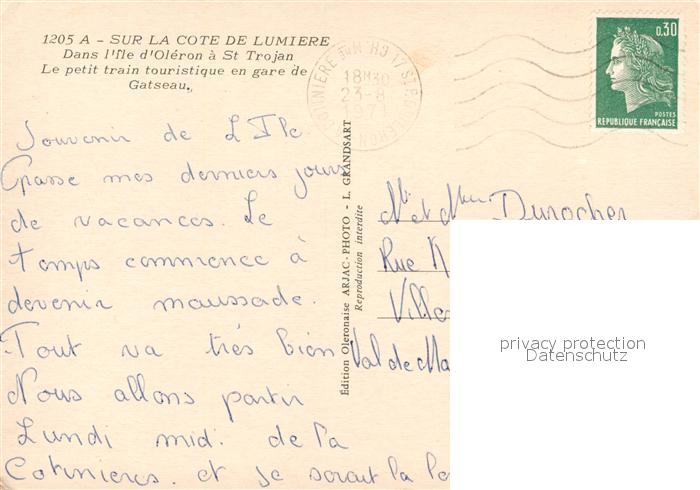 1205 A - SUR LA COTE DE LUMIERE
Dans l'Île d'Oléron à St Trojan
Le petit train touristique en gare de
Gatseau.
18H30
23-8
0,30
POSTES
REPUBLIQUE FRANÇAISE
Souvenir de L Ile
passe mes derniers jours
de vacances. Le
temps commence à
devenir maussade.
Tout va très bien
Nous allons partir
Lundi midi. de la
Cotinieres. et je serait la
Édition Oleronaise ARJAC-PHOTO - L. GRANDSART
Reproduction interdite
Mr et Mme Durocher
Rue
Ville
Val de Ma
privacy protection
Datenschutz